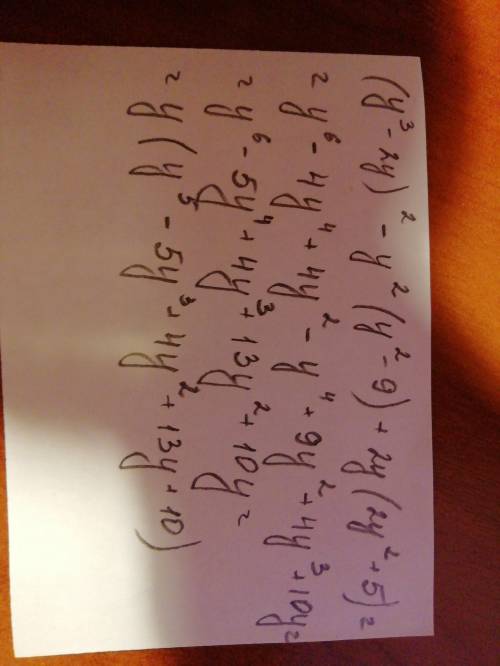 (y³ - 2y)² - y²(y² - 9) + 2y(2y² + 5) =
= y⁶ - 4y⁴ + 4y² - y⁴ + 9y² + 4y³ + 10y =
= y⁶ - 5y⁴ + 4y³ + 13y² + 10y =
= y(y⁵ - 5y³ + 4y² + 13y + 10)